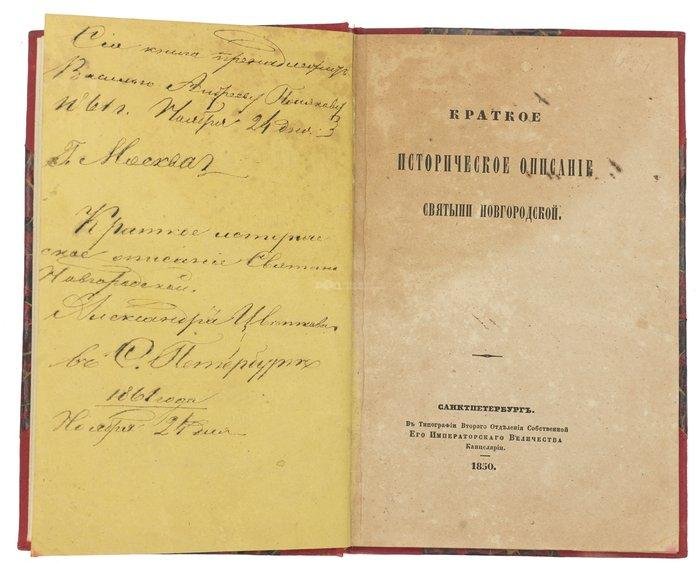 Сія книга принадлежитъ
Василью Андрееву Полякову
1861 г. Ноября 24 дня
Г. Москва
Краткое историче
ское описаніе Святыни
Новгородской.
Александра Цвѣткова
въ С. Петербургѣ
1861 года
Ноября 24 дня
КРАТКОЕ
ИСТОРИЧЕСКОЕ ОПИСАНІЕ
СВЯТЫНИ НОВГОРОДСКОЙ.
САНКТПЕТЕРБУРГЪ.
Въ Типографіи Втораго Отдѣленія Собственной
Его Императорскаго Величества
Канцеляріи.
1850.